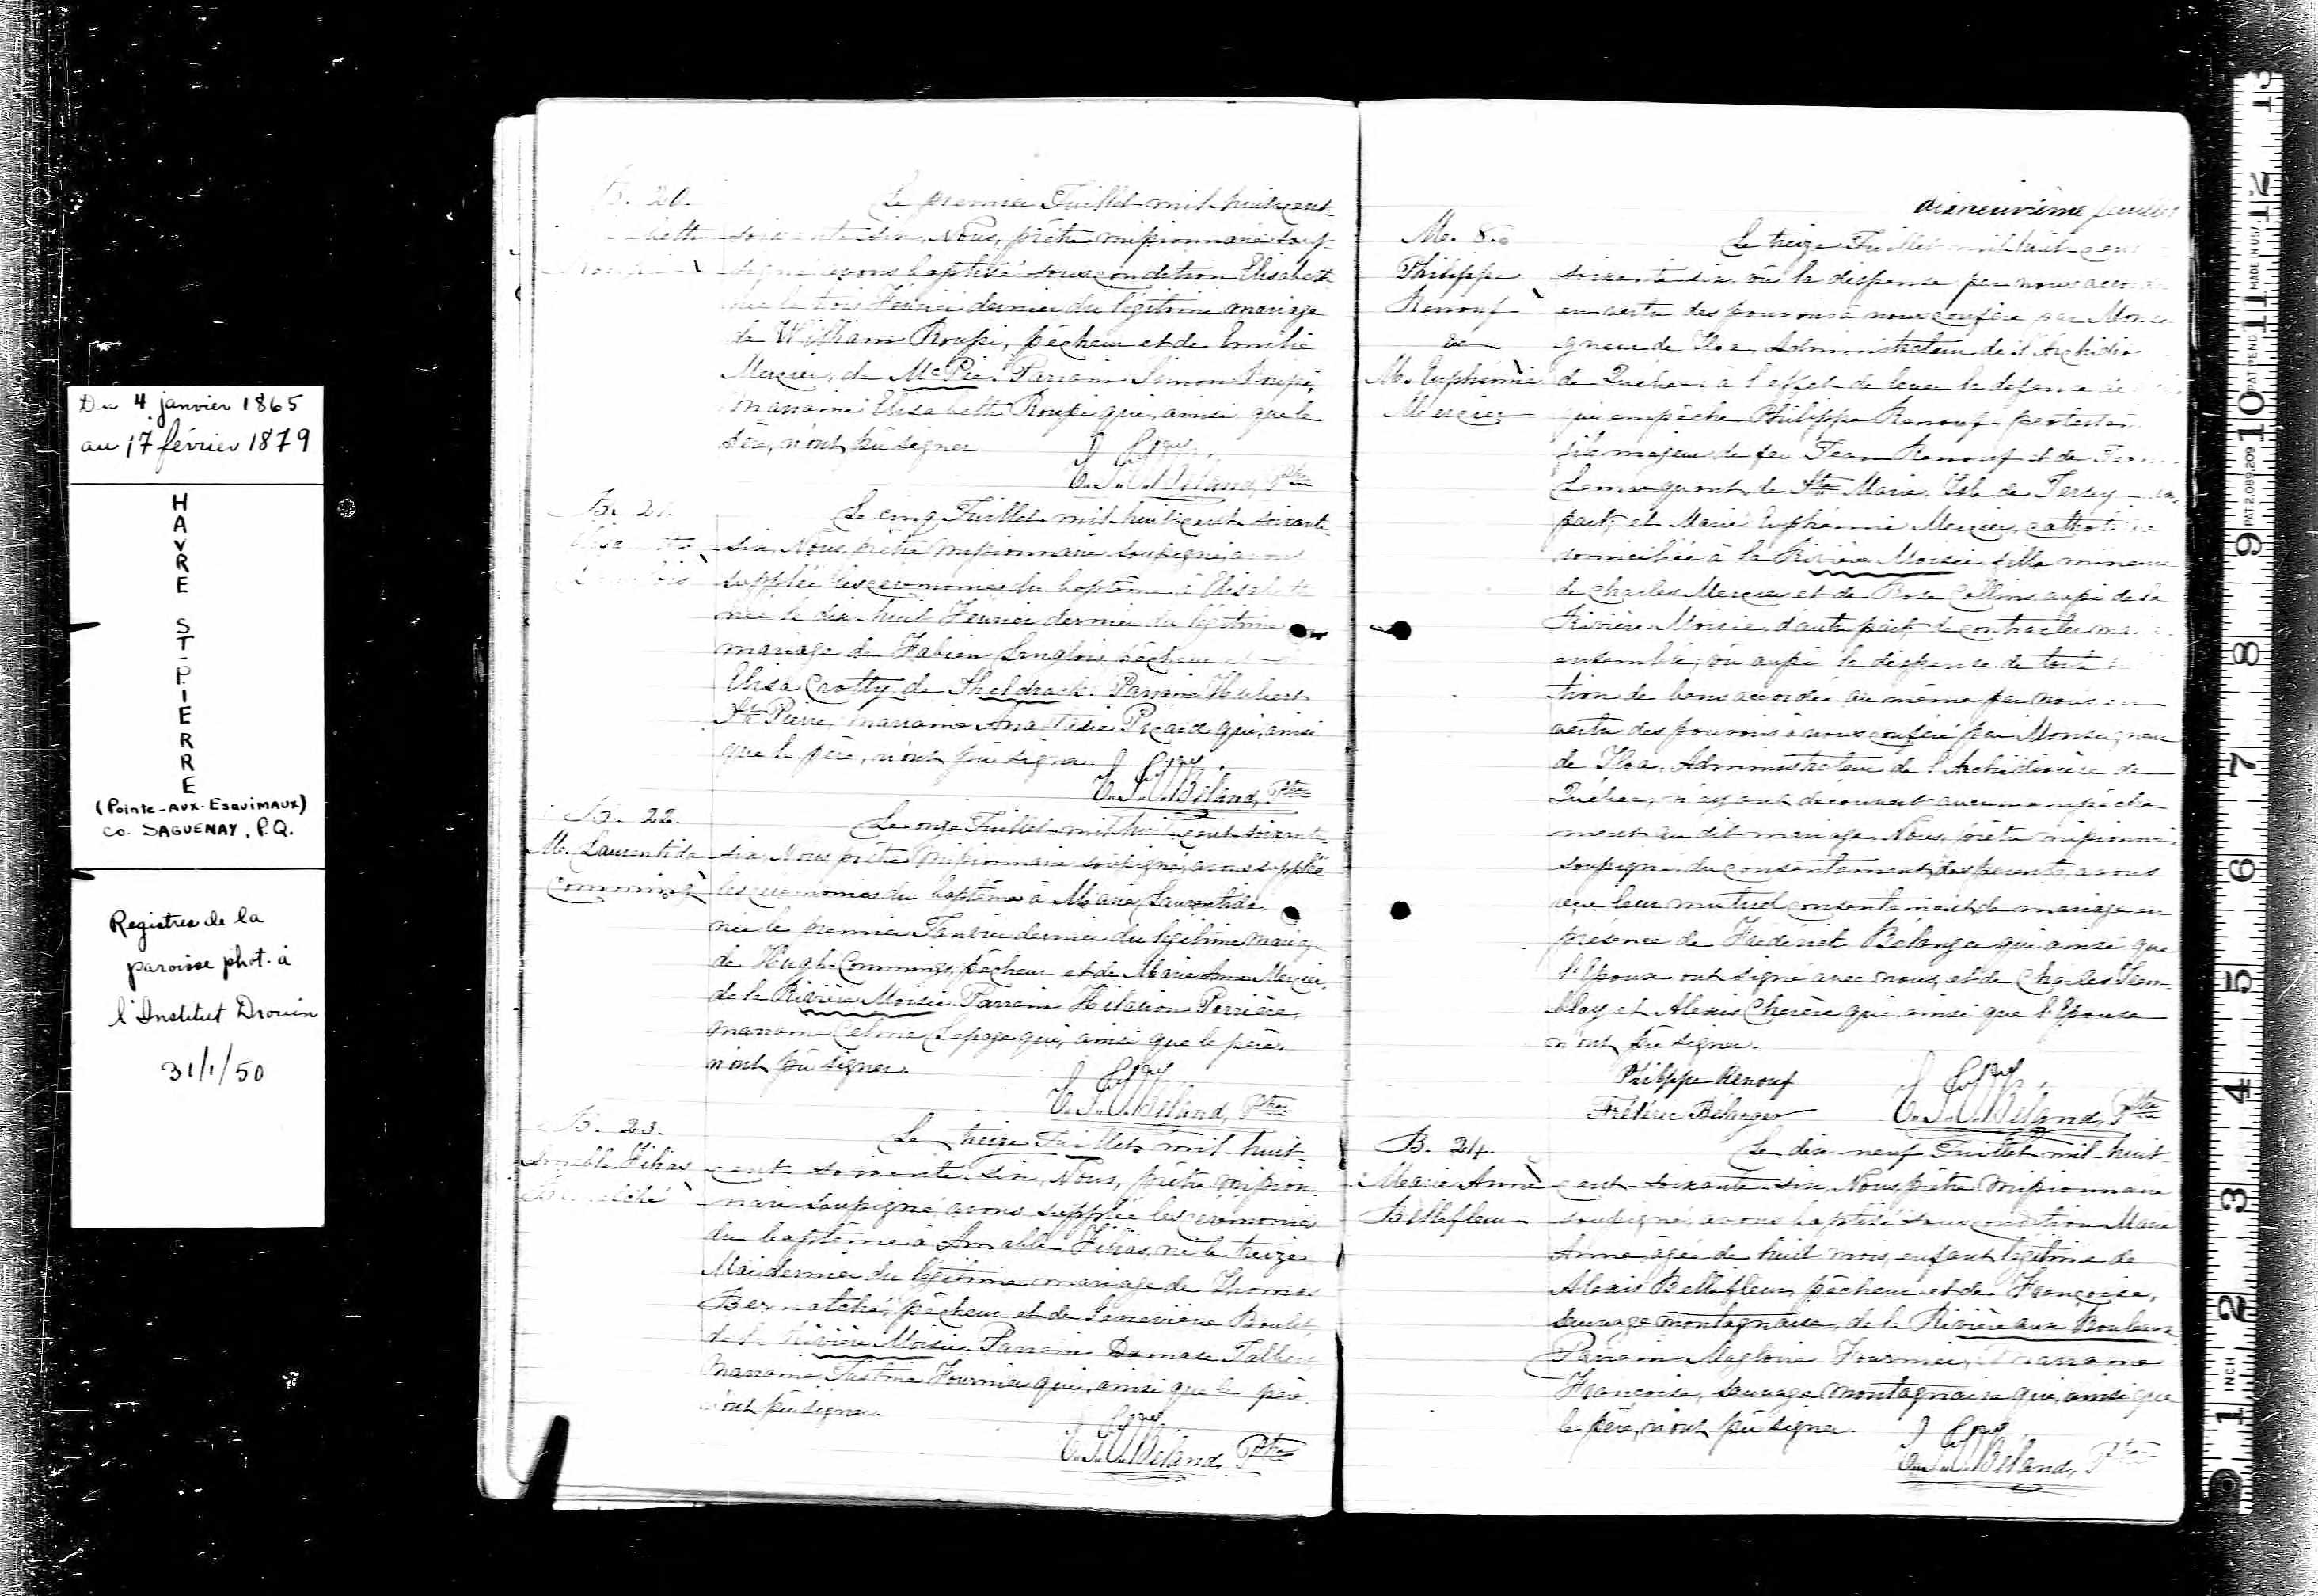 Du 4 janvier 1865
au 17 février 1879
HAVRE ST-PIERRE
(Pointe-aux-Esquimaux)
Co. SAGUENAY, P.Q.
Registres de la
paroisse phot. à
l'Institut Drouin
31/1/50
B. 20.
Le premier Juillet mil huit cent
soixante six, Nous, prêtre missionnaire sous-
signé avons baptisé sous condition Elisabeth
née le trois Fevrier dernier du légitime mariage
de William Roussi, pêcheur et de Emelie
Mercier, de McPie. Parrain Simon Roussi,
marraine Elisabeth Roussi qui, ainsi que le
père, n'ont pû signer
Ptre
B. 21.
Le cinq Juillet mil huit cent soixante
six, Nous, prêtre missionnaire soussigné, avons
supplée les ceremonies du baptême à Elisabeth
née le dix-huit Fevrier dernier du légitime
mariage de Fabien Langlois, pêcheur et
Elisa Crotty de Sheldrack. Parrain Hubert
St Pierre, marraine Anastasie Picard qui, ainsi
que le père, n'ont pû signer
Ptre
B. 22.
Le onze Juillet mil huit cent soixante
M. Laurentida
six, Nous prêtre missionnaire soussigné, avons supplée
Comming
les ceremonies du baptême à Marie Laurentida
née le premier Janvier dernier du légitime mariage
de Hugh Commings, pêcheur et de Marie Anne Mercier,
de la Rivière Moisie. Parrain Hilarion Perrière,
marraine Celina Lepage qui, ainsi que le père,
n'ont pû signer.
Ptre
B. 23.
Le treize Juillet mil huit
Amable Hilas
cent soixante six, Nous, prêtre mission-
naire soussigné, avons supplée les ceremonies
du baptême à Amable Hilas, né le treize
Mai dernier du légitime mariage de Thomas
pêcheur et de Genevieve Boulet,
de la Rivière Moisie. Parrain Damase Talbert
marraine Justine Fournier qui, ainsi que le père
n'ont pû signer.
Ptre
dixneuvième feuillet
M. 8.
Le treize Juillet mil huit cent
Philippe
soixante six, vû la dispense par nous
Renouf
en vertu des pouvoirs à nous conférés par
&
gneur de Tloa, Administrateur de l'Archidio-
M. Euphémie
de Quebec à l'effet de lever la défense
Mercier
qui empêche Philippe Renouf protestant
fils majeur de feu Jean Renouf et de
Lemarquant de Ste Marie, Isle de Jersey
part, et Marie Euphémie Mercier, catholique
domiciliée à la Rivière Moisie, fille mineure
de Charles Mercier et de Rose Collins, aussi de la
Rivière Moisie, d'autre part, de contracter
ensemble, vû aussi la dispense de toute
tion de bans accordée au même par nous en
vertu des pouvoirs à nous conférés par Monseigneur
de Tloa, Administrateur de l'Archidiocèse de
Québec, n'ayant découvert aucun empêche-
ment au dit mariage, Nous, prêtre missionnaire
soussigné du consentement des parents, avons
reçu leur mutuel consentement de mariage en
présence de Frédérick Belanger qui ainsi que
l'Epoux ont signé avec nous, et de Charles
blay et Alexis Cherère qui ainsi que l'Epouse
n'ont pû signer.
Philippe Renouf
Frédéric Bélanger
Ptre
B. 24.
Le dix-neuf Juillet mil huit
Marie Anne
cent soixante-six, Nous, prêtre missionnaire
Bellefleur
soussigné, avons baptisé sous condition Marie
Anne agée de huit mois, enfant légitime de
Alexis Bellefleur, pêcheur et de Françoise,
sauvage montagnaise, de la Rivière aux Bouleaux
Parrain Magloire Fournier, marraine
Françoise, sauvage montagnaise qui, ainsi que
le père, n'ont pû signer.
Ptre